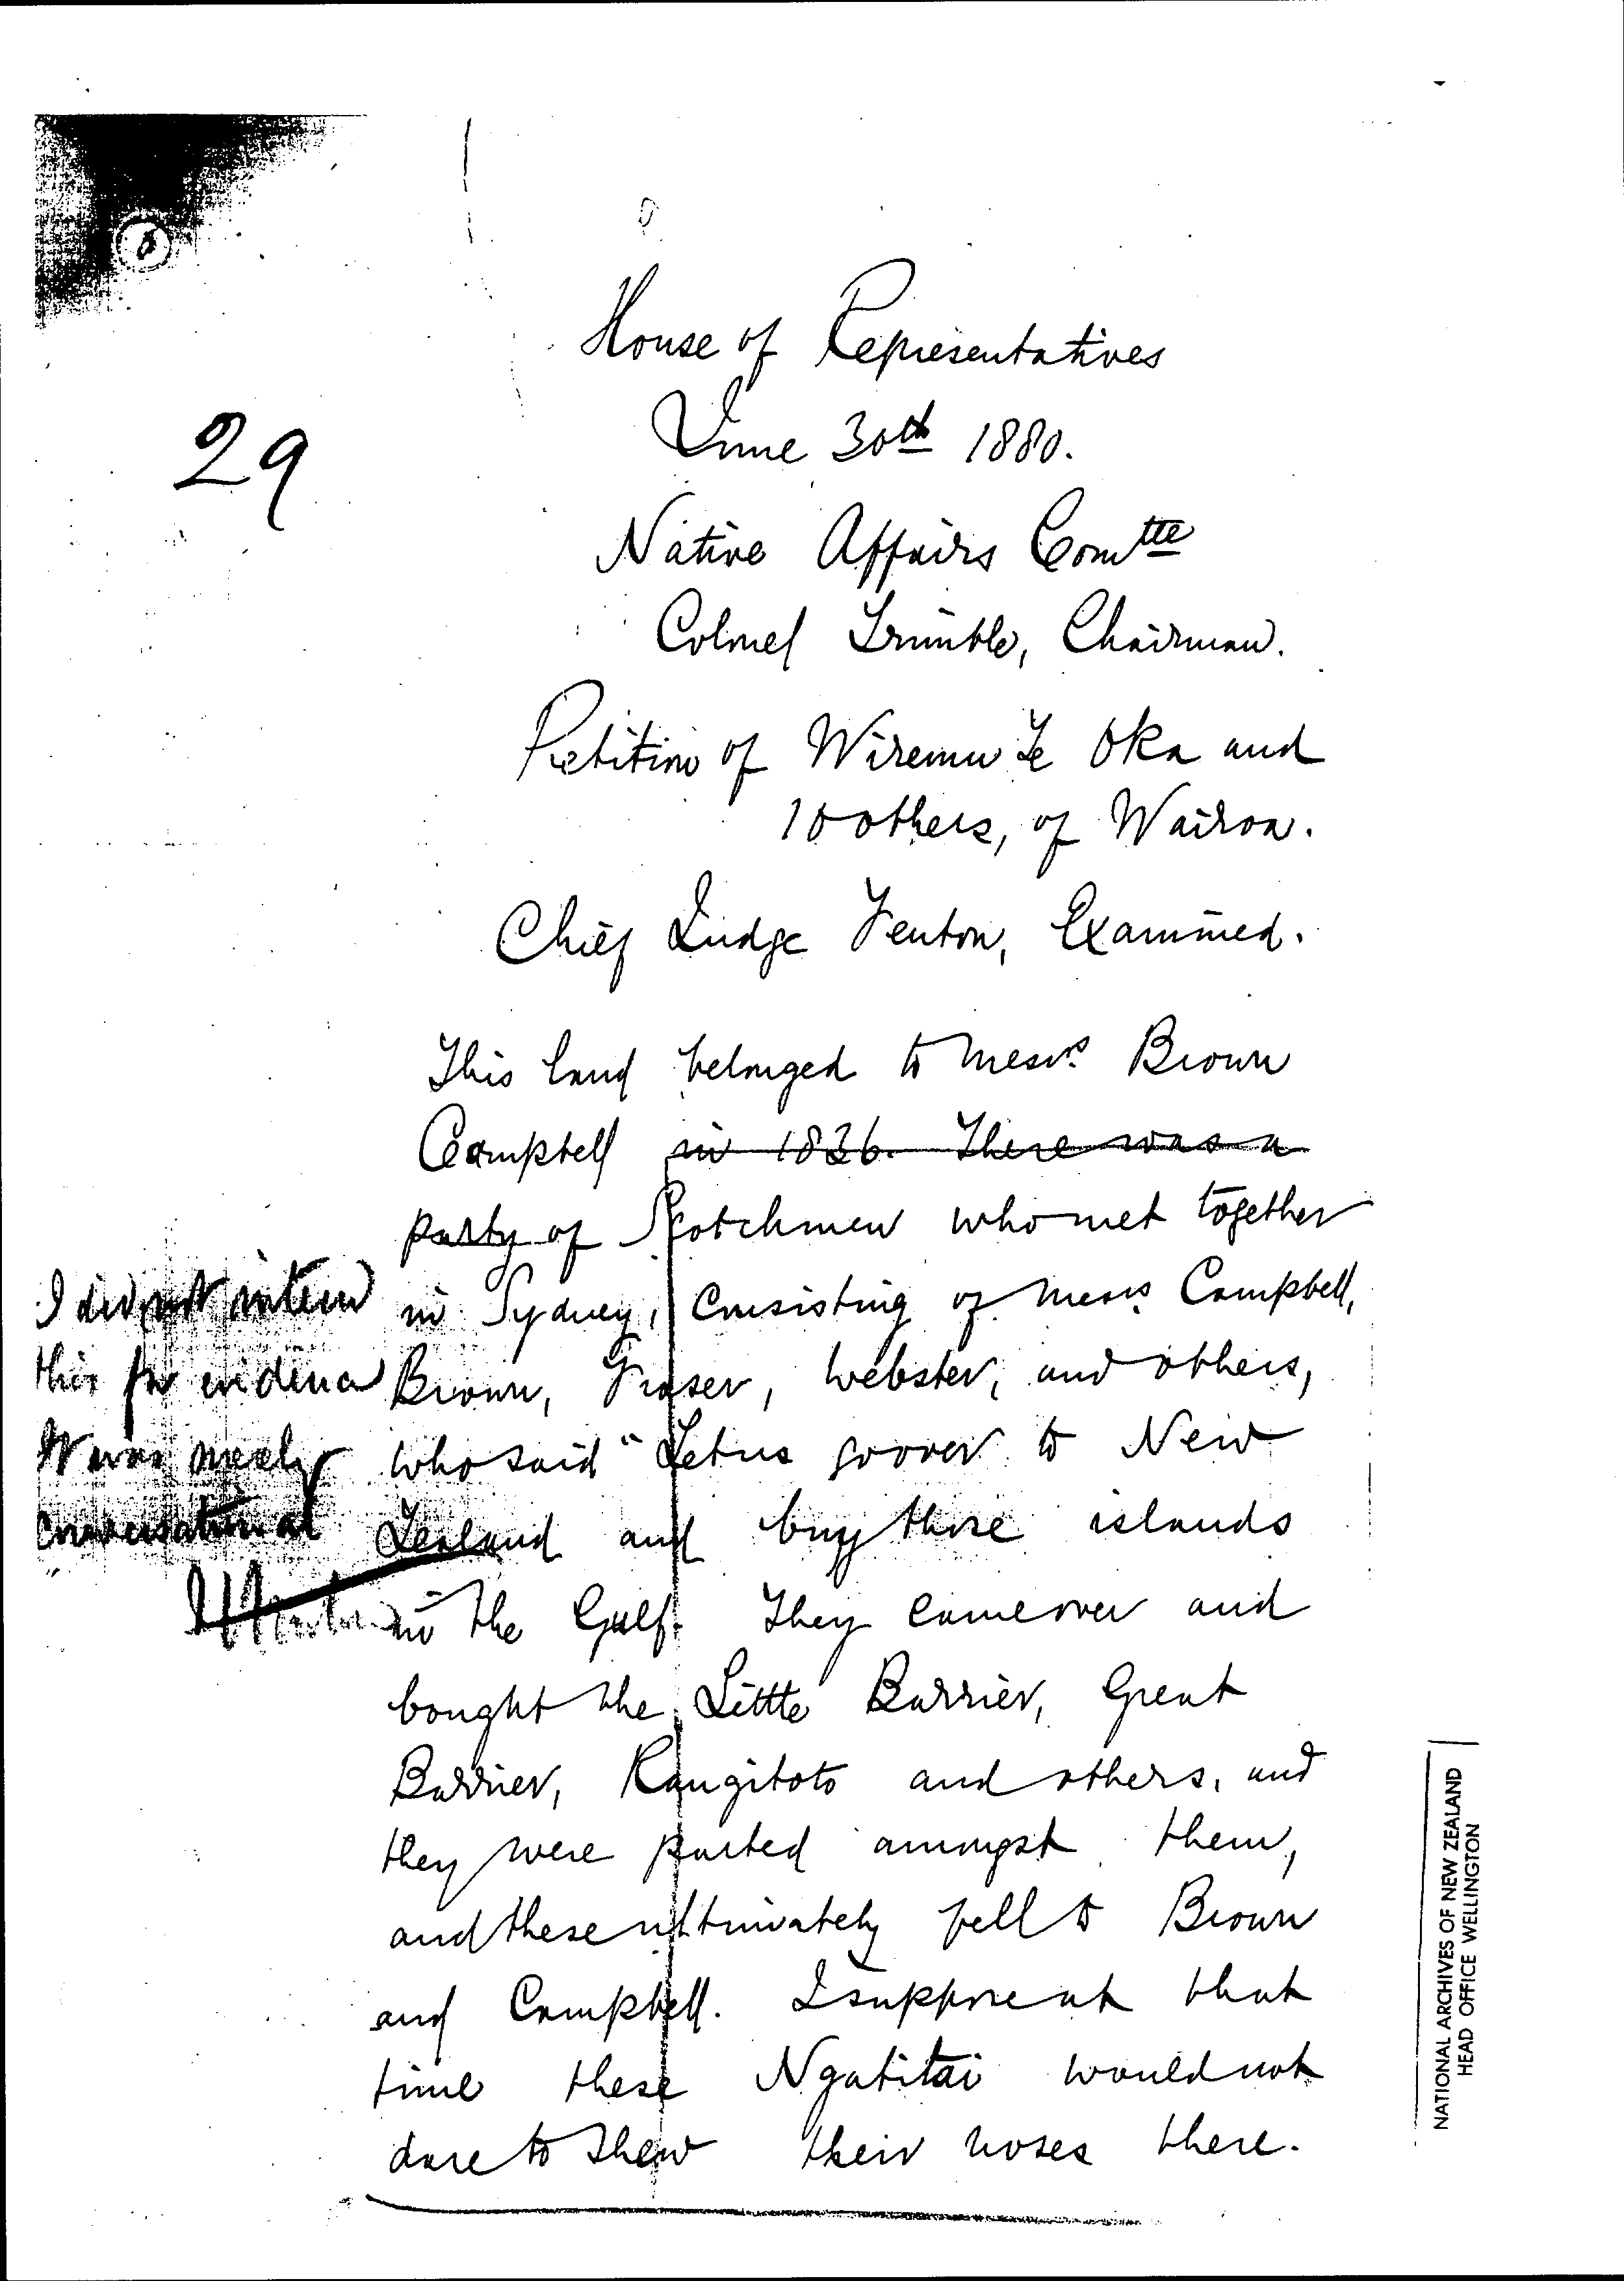 29
House of Representatives
June 30th 1880.
Native Affairs Comttee
Colonel Trimble, Chairman.
Petition of Wiremu Te Oka and
10 others, of Wairoa.
Chief Judge Fenton, Examined.
This land belonged to Messrs Brown
Campbell in 1836. There was a
party of Scotchmen who met together
in Sydney, consisting of Messrs Campbell,
Brown, Fraser, Webster, and others,
who said "Let us go over to New
Zealand and buy those islands
in the Gulf. They came over and
bought the Little Barrier, Great
Barrier, Rangitoto and others, and
they were parted amongst them,
and these ultimately fell to Brown
and Campbell. I suppose at that
time these Ngatitai would not
dare to shew their noses there.
I did not intend
this for evidence
It was merely
conversational
NATIONAL ARCHIVES OF NEW ZEALAND
HEAD OFFICE WELLINGTON